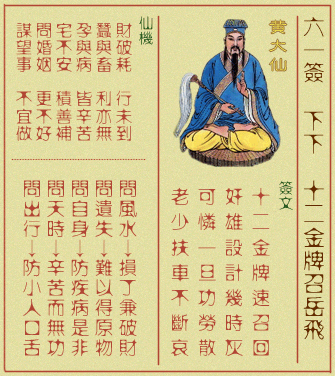 六一簽 下下 十二金牌召岳飛
黄大仙
簽文
十二金牌速召回
奸雄設計幾時灰
可憐一旦功勞散
老少扶車不斷哀
仙機
財破耗 行未到
蠶與畜 利亦無
孕與病 皆辛苦
宅不安 積善補
問婚姻 更不好
謀望事 不宜做
問風水→損丁兼破財
問遺失→難以得原物
問自身→防疾病是非
問天時→辛苦而無功
問出行→防小人口舌